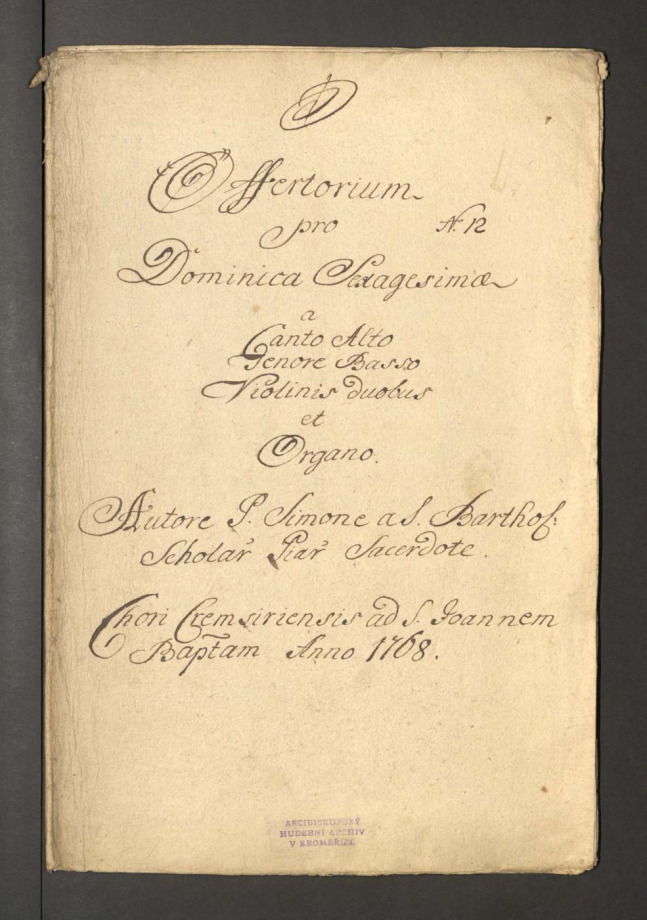 D
Offertorium
pro N. 12
Dominica Sexagesimæ
a
Canto Alto
Tenore Basso
Violinis duobus
et
Organo.
Autore P. Simone a S. Barthol:
Scholar Piar Sacerdote.
Chori Cremsiriensis ad S. Joannem
Baptam Anno 1768.
ARCIBISKUPSKÝ
HUDEBNÍ ARCHIV
V KROMĚŘÍŽI